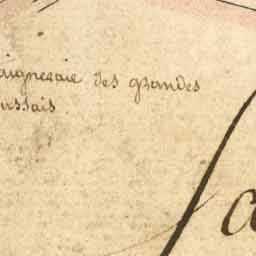 aigneraie des grandes
ussais